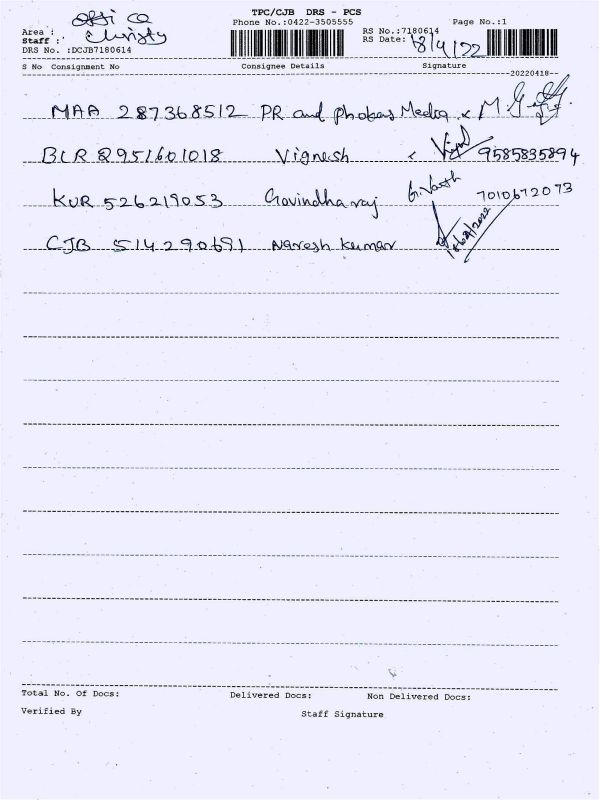 TPC/CJB DRS - PCS
Area : office Phone No.:0422-3505555 RS No.:7180614 Page No.:1
Staff : Christy RS Date: 18/4/22
DRS No. :DCJB7180614
S No Consignment No Consignee Details Signature
--20220418--
MAA 287368512 PR and Media
BLR 8951601018 Vignesh 9585835894
KUR 526219053 Govindharaj 7010672073
CJB 514290691 Naresh Kumar
Total No. Of Docs: Delivered Docs: Non Delivered Docs:
Verified By Staff Signature